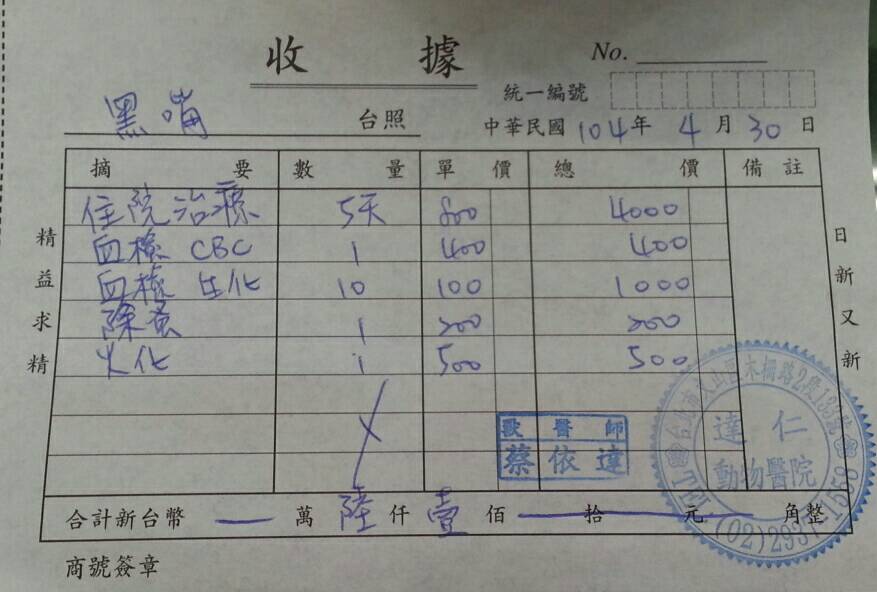 收據
No.
統一編號
黑嘴 台照
中華民國104年4月30日
摘要 數量 單價 總價 備註
住院治療 5天 800 4000
血檢 CBC 1 400 400
血檢 生化 10 100 1000
除蚤 1 200 200
火化 1 500 500
精益求精
日新又新
獸醫師
蔡依達
台北市文山區木柵路2段183號
達仁
動物醫院
TEL(02)2937-1559
合計新台幣 — 萬 陸 仟 壹 佰 拾 元 角整
商號簽章